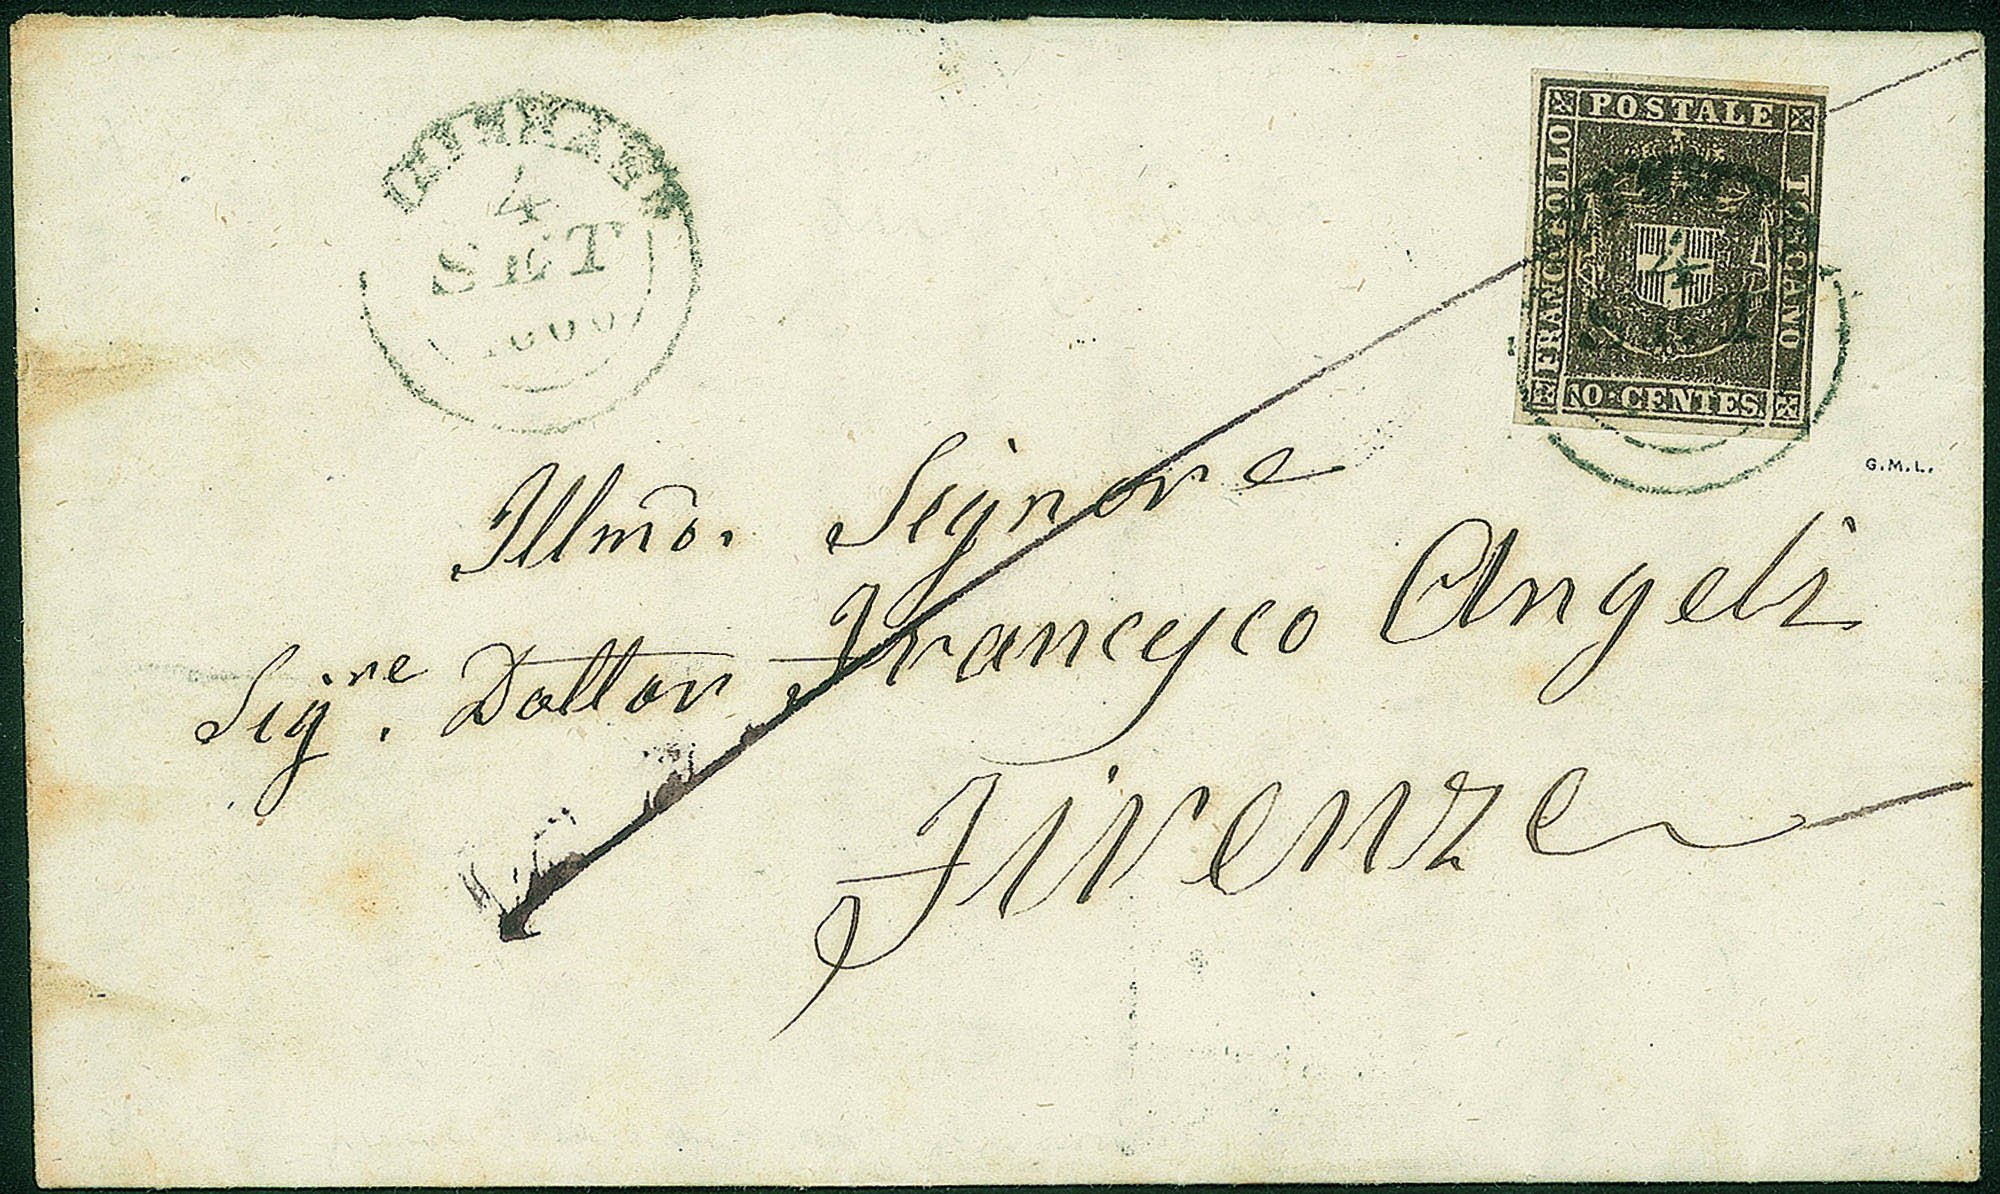 4
SET
1860
FRANCOBOLLO
POSTALE
TOSCANO
10 CENTES.
4
G.M.L.
Illmo. Signore
Sigre. Dottor Francesco Angeli
Firenze